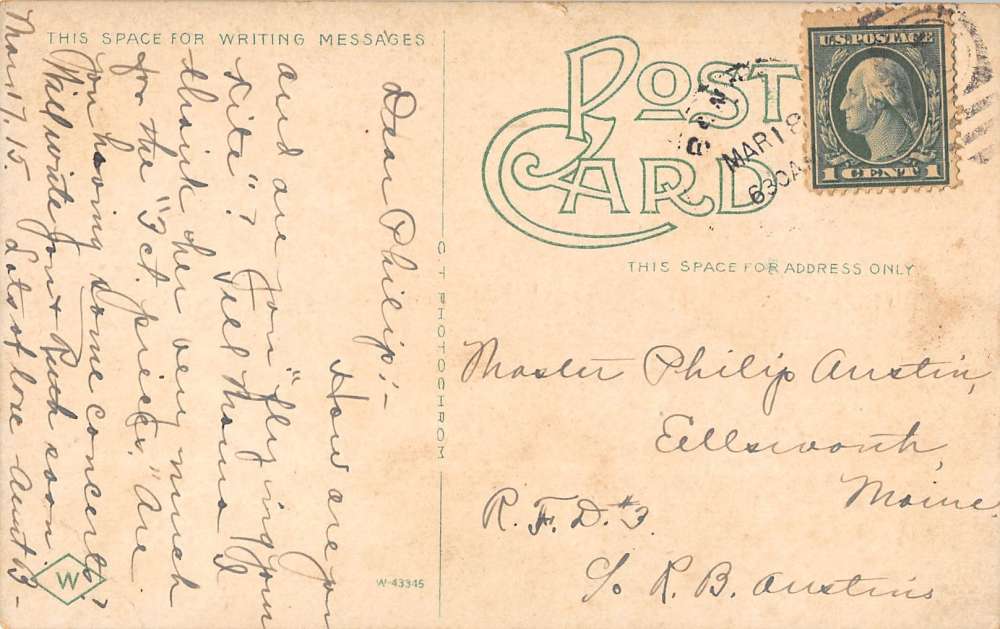 THIS SPACE FOR WRITING MESSAGES
Dear Philip:-
How are you
and are you "flying your
kite"? Tell Mama I
thank her very much
for the "3 ct. pieces." Are
you having some concerts?
Will write you & Ruth soon.
Mar. 17, 15. Lots of love Aunt B-
C T PHOTOCHROM
W
W-43345
POST
CARD
MAR 18
630A
U.S. POSTAGE
1 CENT 1
THIS SPACE FOR ADDRESS ONLY
Master Philip Austin,
Ellsworth,
Maine.
R.F.D. #3
c/o R. B. Austins